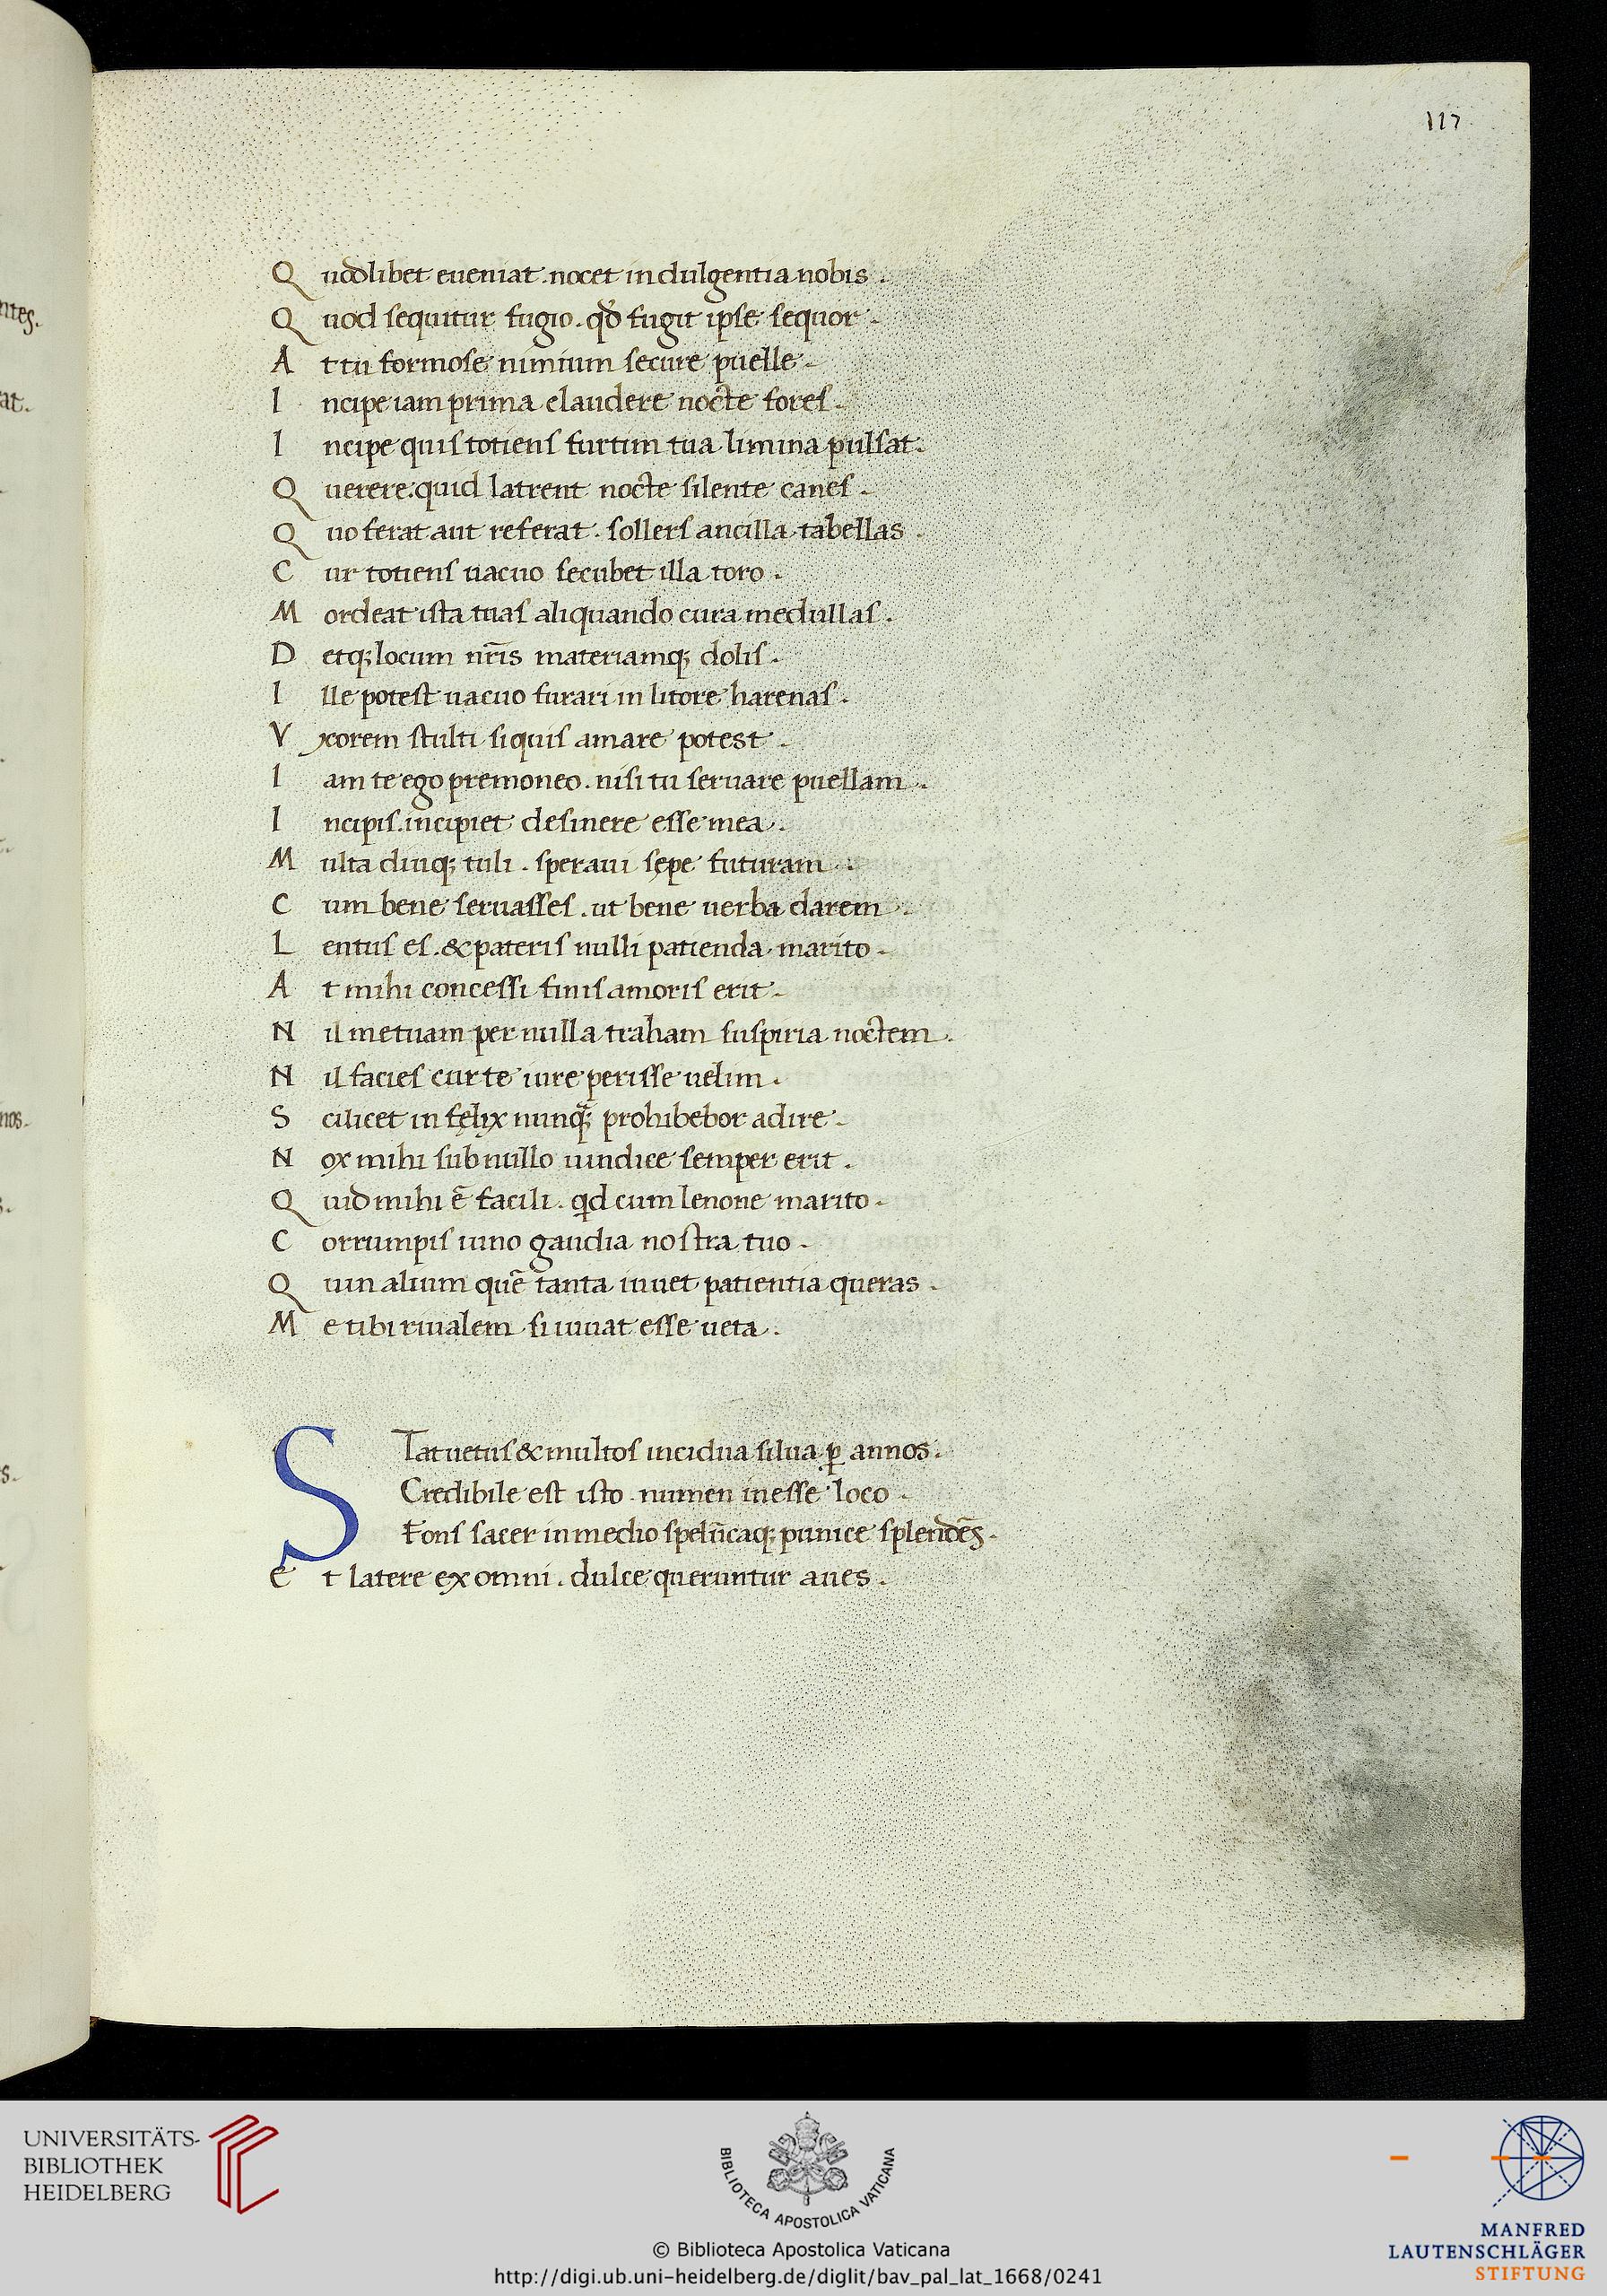 117
Quodlibet eueniat . nocet indulgentia nobis .
Quod sequitur fugio . qđ fugit ipse sequor .
At tu formose nimium secure puelle .
Incipe iam prima claudere nocte fores .
Incipe quis totiens furtim tua limina pulsat .
Querere . quid latrent nocte silente canes .
Quo ferat aut referat . sollers ancilla tabellas .
Cur totiens uacuo secubet illa toro .
Mordeat ista tuas aliquando cura medullas .
Detq; locum nr̄is materiamq; dolis .
Ille potest uacuo furari in litore harenas .
Vxorem stulti siquis amare potest .
Iam te ego premoneo . nisi tu seruare puellam .
Incipis . incipiet desinere esse mea .
Multa diuq; tuli . speraui sępe futuram .
Cum bene seruasses . ut bene uerba darem .
Lentus es . & pateris nulli patienda marito .
At mihi concessi finis amoris erit .
Nil metuam per nulla traham suspiria noctem .
Nil facies cur te iure perisse uelim .
Scilicet infęlix nunq̄ prohibebor adire .
Nox mihi sub nullo uindice semper erit .
Quid mihi ē facili . qd cum lenone marito .
Corrumpis iuno gaudia nostra tuo .
Quin alium quē tanta iuuet patientia queras .
Me tibi riualem si iuuat esse ueta .
STat uetus & multos incidua silua ꝑ annos .
Credibile est isto numen inesse loco .
Fons sacer in medio spelūcaq; punice splendēs .
Et latere ex omni . dulce queruntur aues .
UNIVERSITÄTS-
BIBLIOTHEK
HEIDELBERG
BIBLIOTECA APOSTOLICA VATICANA
© Biblioteca Apostolica Vaticana
http://digi.ub.uni-heidelberg.de/diglit/bav_pal_lat_1668/0241
MANFRED
LAUTENSCHLÄGER
STIFTUNG